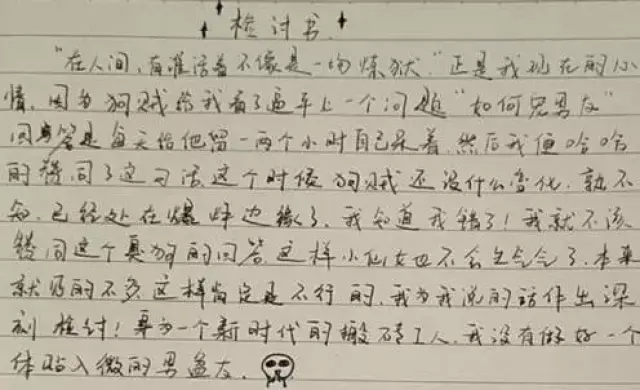 检讨书
"在人间,有谁活着不像是一场炼狱"正是我现在的心
情,因为狗贼给我看了逼乎上一个问题"如何宠男友"
回答是每天给他留一两个小时自己呆着,然后我便哈哈
的赞同了这句话,这个时候狗贼还没什么变化,孰不
知,已经处在爆炸边缘了,我知道我错了!我就不该
赞同这个臭狗的回答,这样小仙女也不会生气气了,本来
就见的不多,这样肯定是不行的,我为我说的话作出深
刻检讨!身为一个新时代的搬砖工人,我没有做好一个
体贴入微的男盆友.